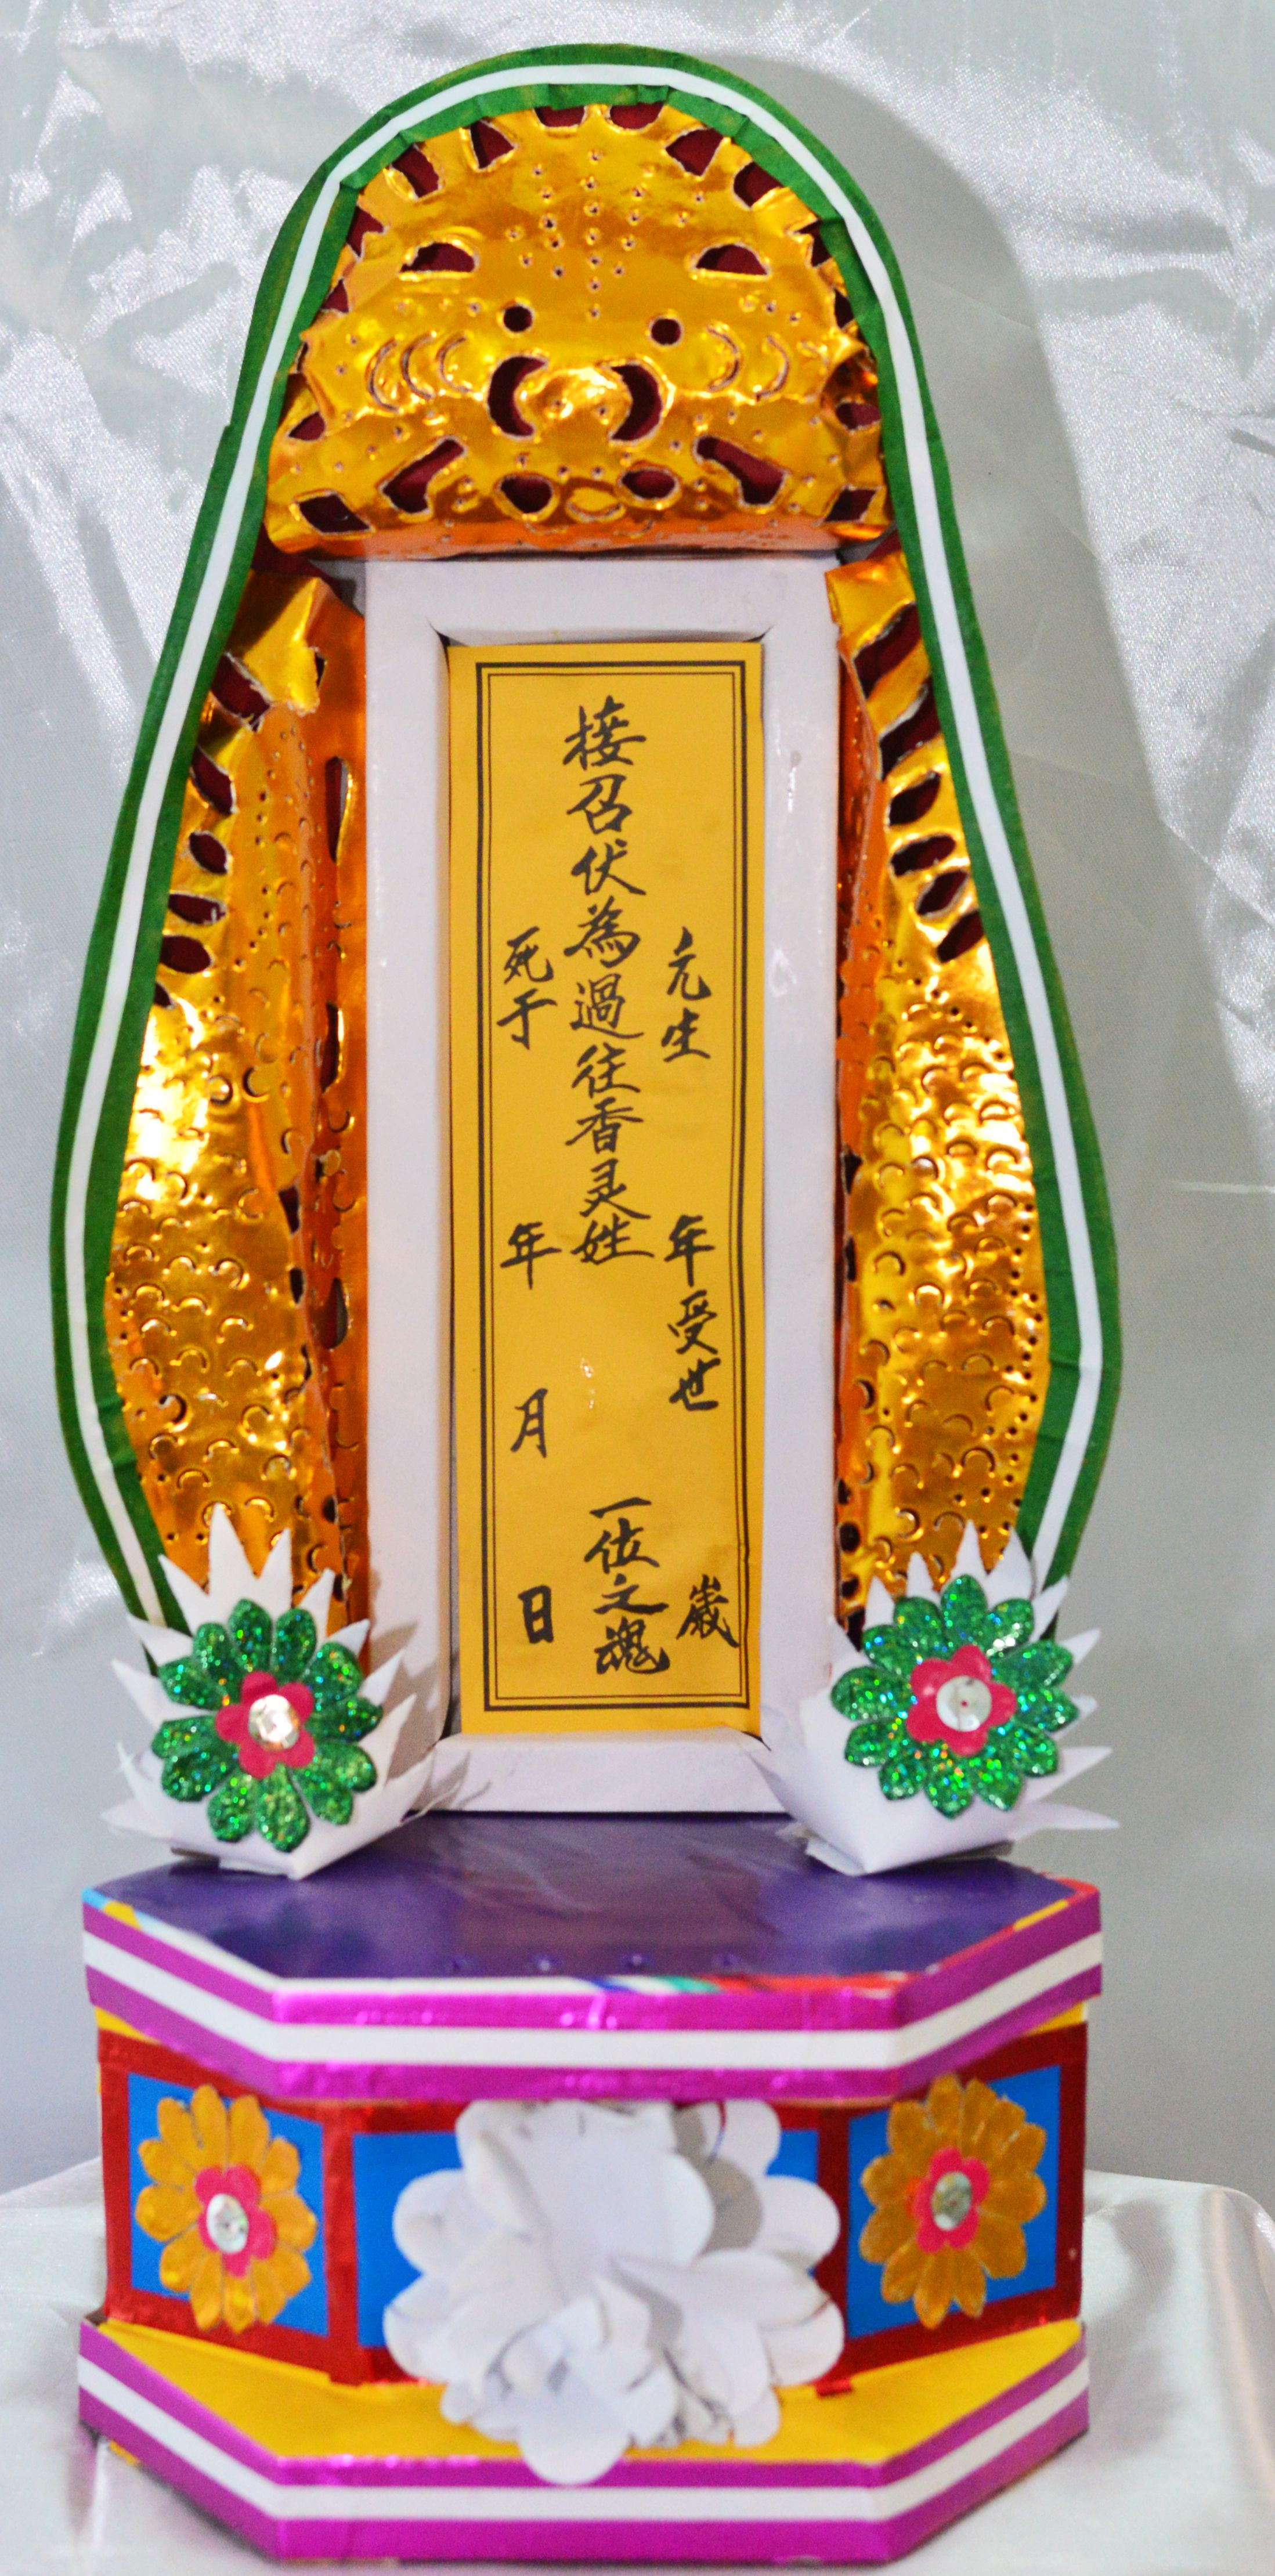 元生年受世歲
接召伏為過往香灵姓一位之魂
死于年月日